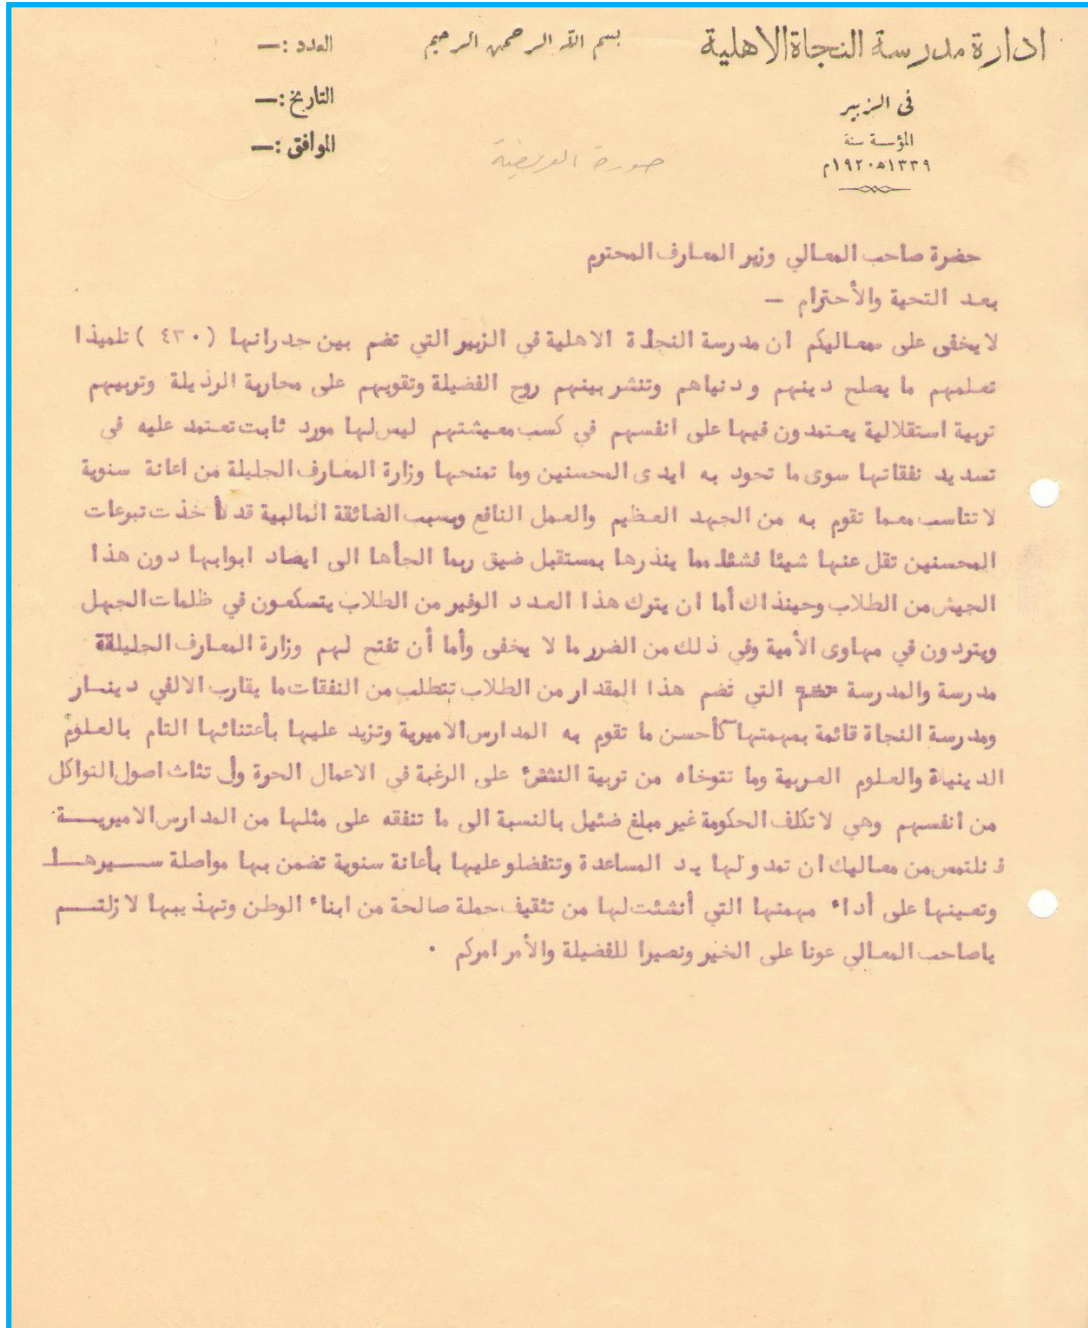 ادارة مدرسة النجاة الاهلية
في الزبير
المؤسسة سنة
١٣٣٩هـ ١٩٢٠م
بسم الله الرحمن الرحيم
العدد :—
التاريخ :—
الموافق :—
صورة العريضة
حضرة صاحب المعالي وزير المعارف المحترم
بعد التحية والأحترام —
لا يخفى على معاليكم ان مدرسة النجاة الاهلية في الزبير التي تضم بين جدرانها ( ٤٣٠ ) تلميذا
تعلمهم ما يصلح دينهم ودنياهم وتنشر بينهم روح الفضيلة وتقويهم على محاربة الرذيلة وتربيهم
تربية استقلالية يعتمدون فيها على انفسهم في كسب معيشتهم ليس لها مورد ثابت تعتمد عليه في
تسديد نفقاتها سوى ما تجود به ايدى المحسنين وما تمنحها وزارة المعارف الجليلة من اعانة سنوية
لا تتاسب معما تقوم به من الجهد العظيم والعمل النافع وبسبب الضائقة المالية قد أخذت تبرعات
المحسنين تقل عنها شيئا فشئا مما ينذرها بمستقبل ضيق ربما الجأها الى ايصاد ابوابها دون هذا
الجيش من الطلاب وحينذاك أما ان يترك هذا العدد الوفير من الطلاب يتسكعون في ظلمات الجهل
ويتردون في مهاوى الأمية وفي ذلك من الضرر ما لا يخفى وأما أن تفتح لهم وزارة المعارف الجليلة
مدرسة والمدرسة التي تضم هذا المقدار من الطلاب تتطلب من النفقات ما يقارب الالفي دينـار
ومدرسة النجاة قائمة بمهمتها كأحسن ما تقوم به المدارس الاميرية وتزيد عليها بأعتنائها التام بالعلوم
الدينية والعلوم العربية وما تتوخاه من تربية النشئ على الرغبة في الاعمال الحرة وأن تثاث اصول التواكل
من انفسهم وهي لا تكلف الحكومة غير مبلغ ضئيل بالنسبة الى ما تنفقه على مثلها من المدارس الاميريـــة
فنلتمس من معاليك ان تمدو لها يد المساعدة وتتفضلو عليها بأعانة سنوية تضمن بها مواصلة ســـيرهـــا
وتعينها على أداء مهمتها التي أنشئت لها من تثقيف جملة صالحة من ابناء الوطن وتهذيبها لا زلتـــم
ياصاحب المعالي عونا على الخير ونصيرا للفضيلة والأمر امركم .